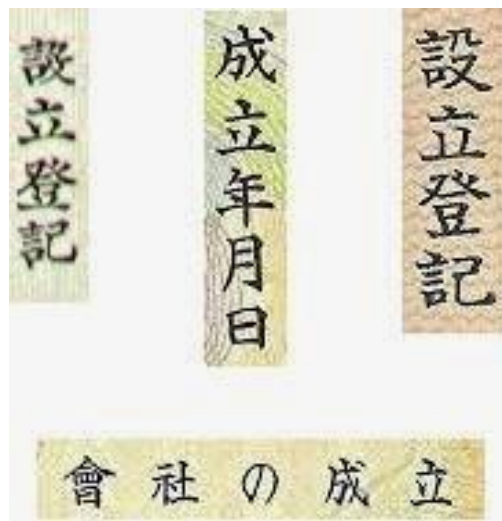 設立登記
成立年月日
設立登記
會社の成立